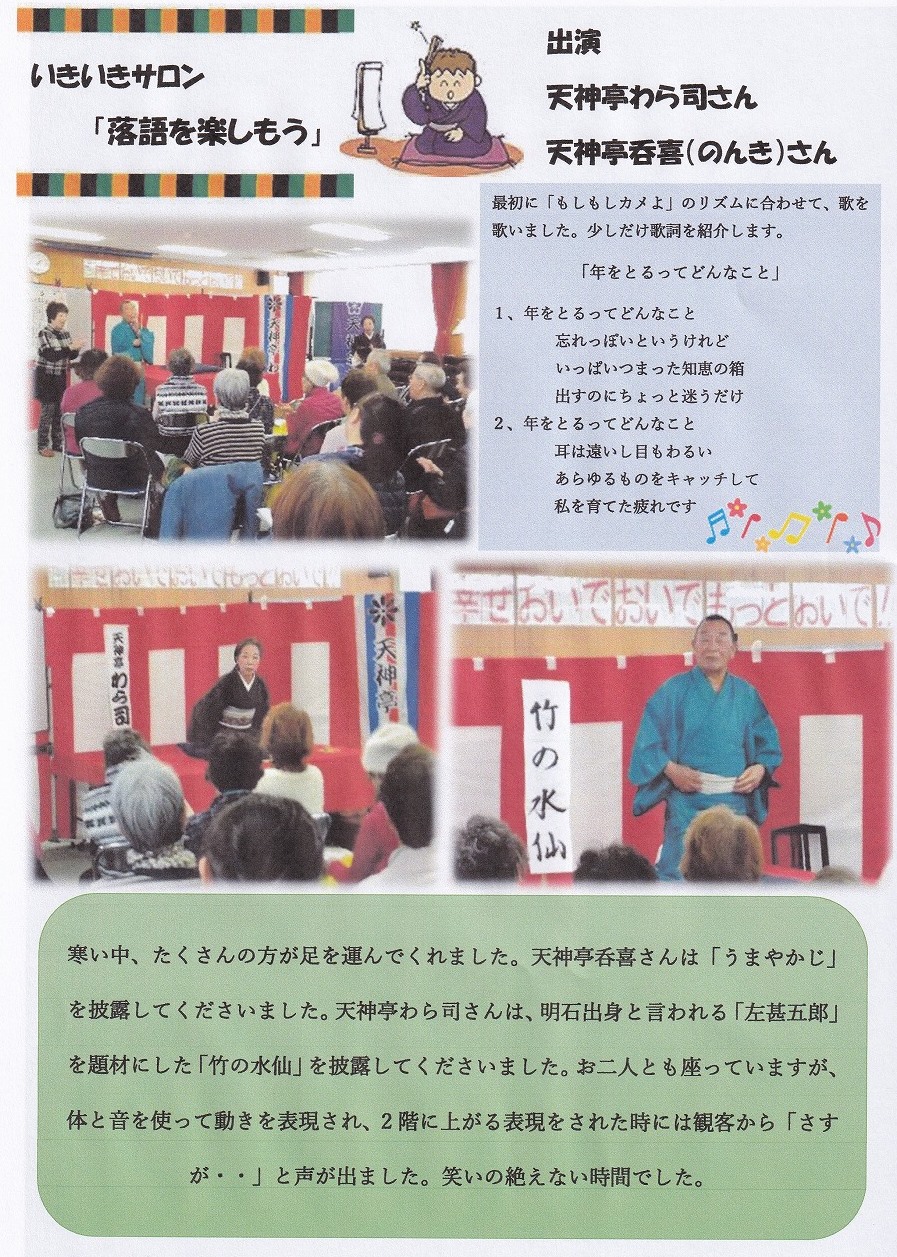 いきいきサロン
「落語を楽しもう」
出演
天神亭わら司さん
天神亭呑喜(のんき)さん
最初に「もしもしカメよ」のリズムに合わせて、歌を
歌いました。少しだけ歌詞を紹介します。
「年をとるってどんなこと」
１、年をとるってどんなこと
忘れっぽいというけれど
いっぱいつまった知恵の箱
出すのにちょっと迷うだけ
２、年をとるってどんなこと
耳は遠いし目もわるい
あらゆるものをキャッチして
私を育てた疲れです
幸せおいでおいでもっとおいで!
天神亭わ
天神
幸せおいでおいでもっとおいで!
天神亭わら司
天神亭
幸せおいでおいでもっとおいで!!
竹の水仙
寒い中、たくさんの方が足を運んでくれました。天神亭呑喜さんは「うまやかじ」
を披露してくださいました。天神亭わら司さんは、明石出身と言われる「左甚五郎」
を題材にした「竹の水仙」を披露してくださいました。お二人とも座っていますが、
体と音を使って動きを表現され、２階に上がる表現をされた時には観客から「さす
が・・」と声が出ました。笑いの絶えない時間でした。